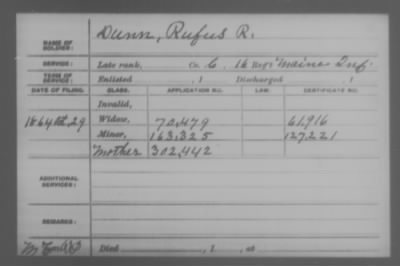 NAME OF SOLDIER: Dunn, Rufus R.
SERVICE: Late rank, Co. G, 16 Reg't Maine Inf.
TERM OF SERVICE: Enlisted , 1 Discharged , 1
DATE OF FILING. CLASS. APPLICATION NO. LAW. CERTIFICATE NO.
Invalid,
1864 Oct. 29 Widow, 70,479 61,916
Minor, 163,325 127,221
Mother 302,442
ADDITIONAL SERVICES:
REMARKS:
Died , 1 , at